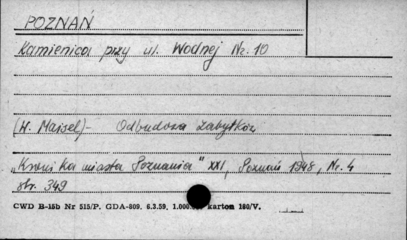 POZNAŃ
Kamienica przy ul. Wodnej Nr. 10
(W. Maisel) - Odbudowa zabytków
„Kronika miasta Poznania" XXI, Poznań 1948, Nr. 4
str. 349
CWD B-15b Nr 515/P. GDA-809. 6.3.59. 1.000. karton 180/V.